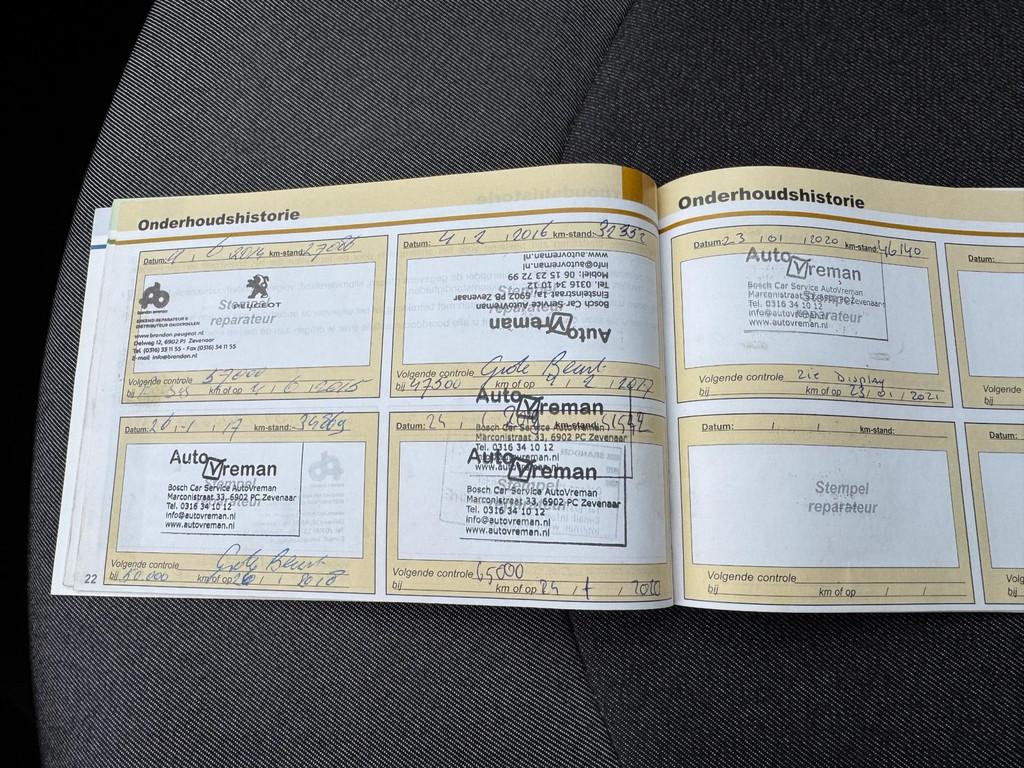 Onderhoudshistorie
Datum: 4 6 2014 km-stand: 27086
PEUGEOT
Stempel
reparateur
ERKEND REPARATEUR &
DISTRIBUTEUR ONDERDELEN
www.brandon.peugeot.nl
Delweg 12, 6902 PJ Zevenaar
Tel. (0316) 33 11 55 - Fax (0316) 34 11 55
E-mail info@brandon.nl
Volgende controle 57000
bij km of op 4, 6, 2015
Datum: 4, 2, 2016 km-stand: 32332
AutoVreman
Stempel
reparateur
Bosch Car Service AutoVreman
Einsteinstraat 1a, 6902 PB Zevenaar
Tel. 0316 34 10 12
Mobiel: 06 15 23 72 99
info@autovreman.nl
www.autovreman.nl
Volgende controle Grote Beurt
bij 47500 km of op 4, 2, 2017
Datum: 26-1-17 km-stand: 34869
AutoVreman
Stempel
reparateur
Bosch Car Service AutoVreman
Marconistraat 33, 6902 PC Zevenaar
Tel. 0316 34 10 12
info@autovreman.nl
www.autovreman.nl
Volgende controle Grote Beurt
bij 50.000 km of op 26, 1, 2018
Datum: 24, km-stand:
AutoVreman
Bosch Car Service AutoVreman
Marconistraat 33, 6902 PC Zevenaar
Tel. 0316 34 10 12
www.autovreman.nl
AutoVreman
Stempel
Bosch Car Service AutoVreman
Marconistraat 33, 6902 PC Zevenaar
Tel. 0316 34 10 12
info@autovreman.nl
www.autovreman.nl
Volgende controle 65000
bij km of op 24, 1, 2020
22
Onderhoudshistorie
Datum: 23, 01, 2020 km-stand: 46140
AutoVreman
Stempel
reparateur
Bosch Car Service AutoVreman
Marconistraat 33, 6902 PC Zevenaar
Tel. 0316 34 10 12
info@autovreman.nl
www.autovreman.nl
Volgende controle zie Display
bij km of op 23, 01, 2021
Datum:
Volgende
bij
Datum: / / km-stand:
Stempel
reparateur
Volgende controle
bij km of op / /
Datum:
Volg
bij